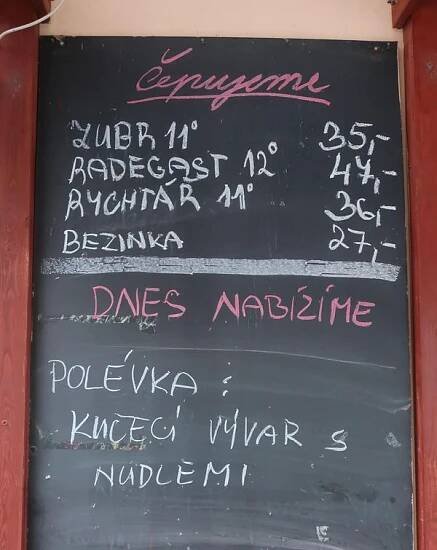 Čepujeme
ZUBR 11° 35,-
RADEGAST 12° 47,-
RYCHTÁŘ 11° 36,-
BEZINKA 27,-
DNES NABÍZÍME
POLÉVKA :
KUŘECÍ VÝVAR S
NUDLEMI